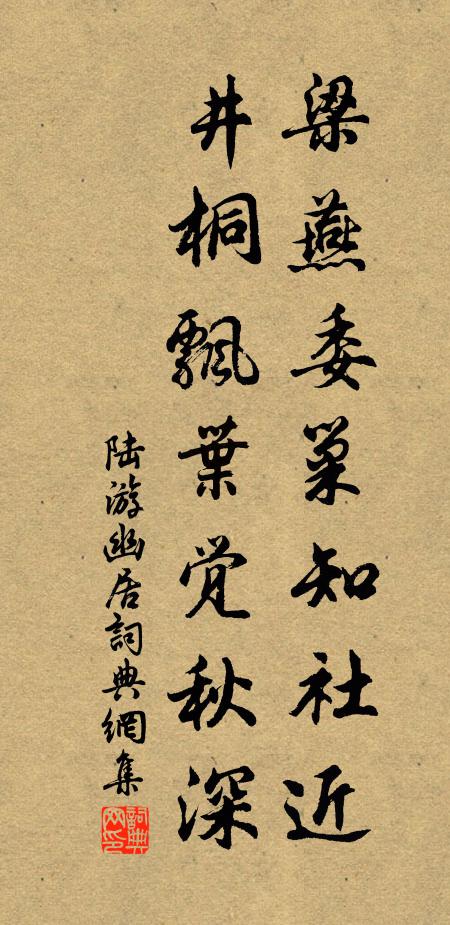 梁燕委巢知社近
井桐飄葉觉秋深
陆游幽居詞典網集
詞典网印